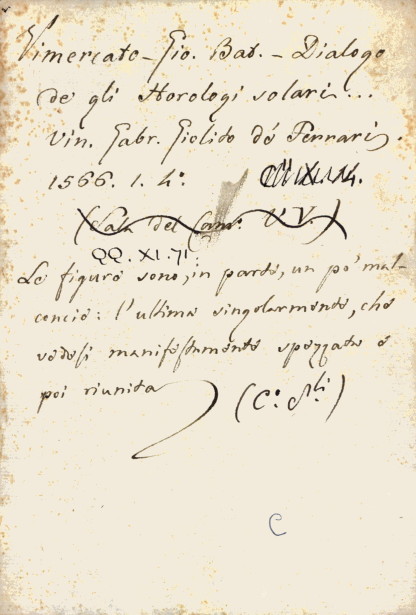 Vimercato - Gio. Bat. - Dialogo
de gli Horologi solari...
Vin. Gabr. Giolito dé Ferrari.
1566. 1. 4°.
(Sala del Cam. V.)
QQ. XI. 71.
Le figure sono, in parte, un po' mal-
concie: l'ultima singolarmente, che
vedesi manifestamente spezzata e
poi riunita
(C.° S.li)
C